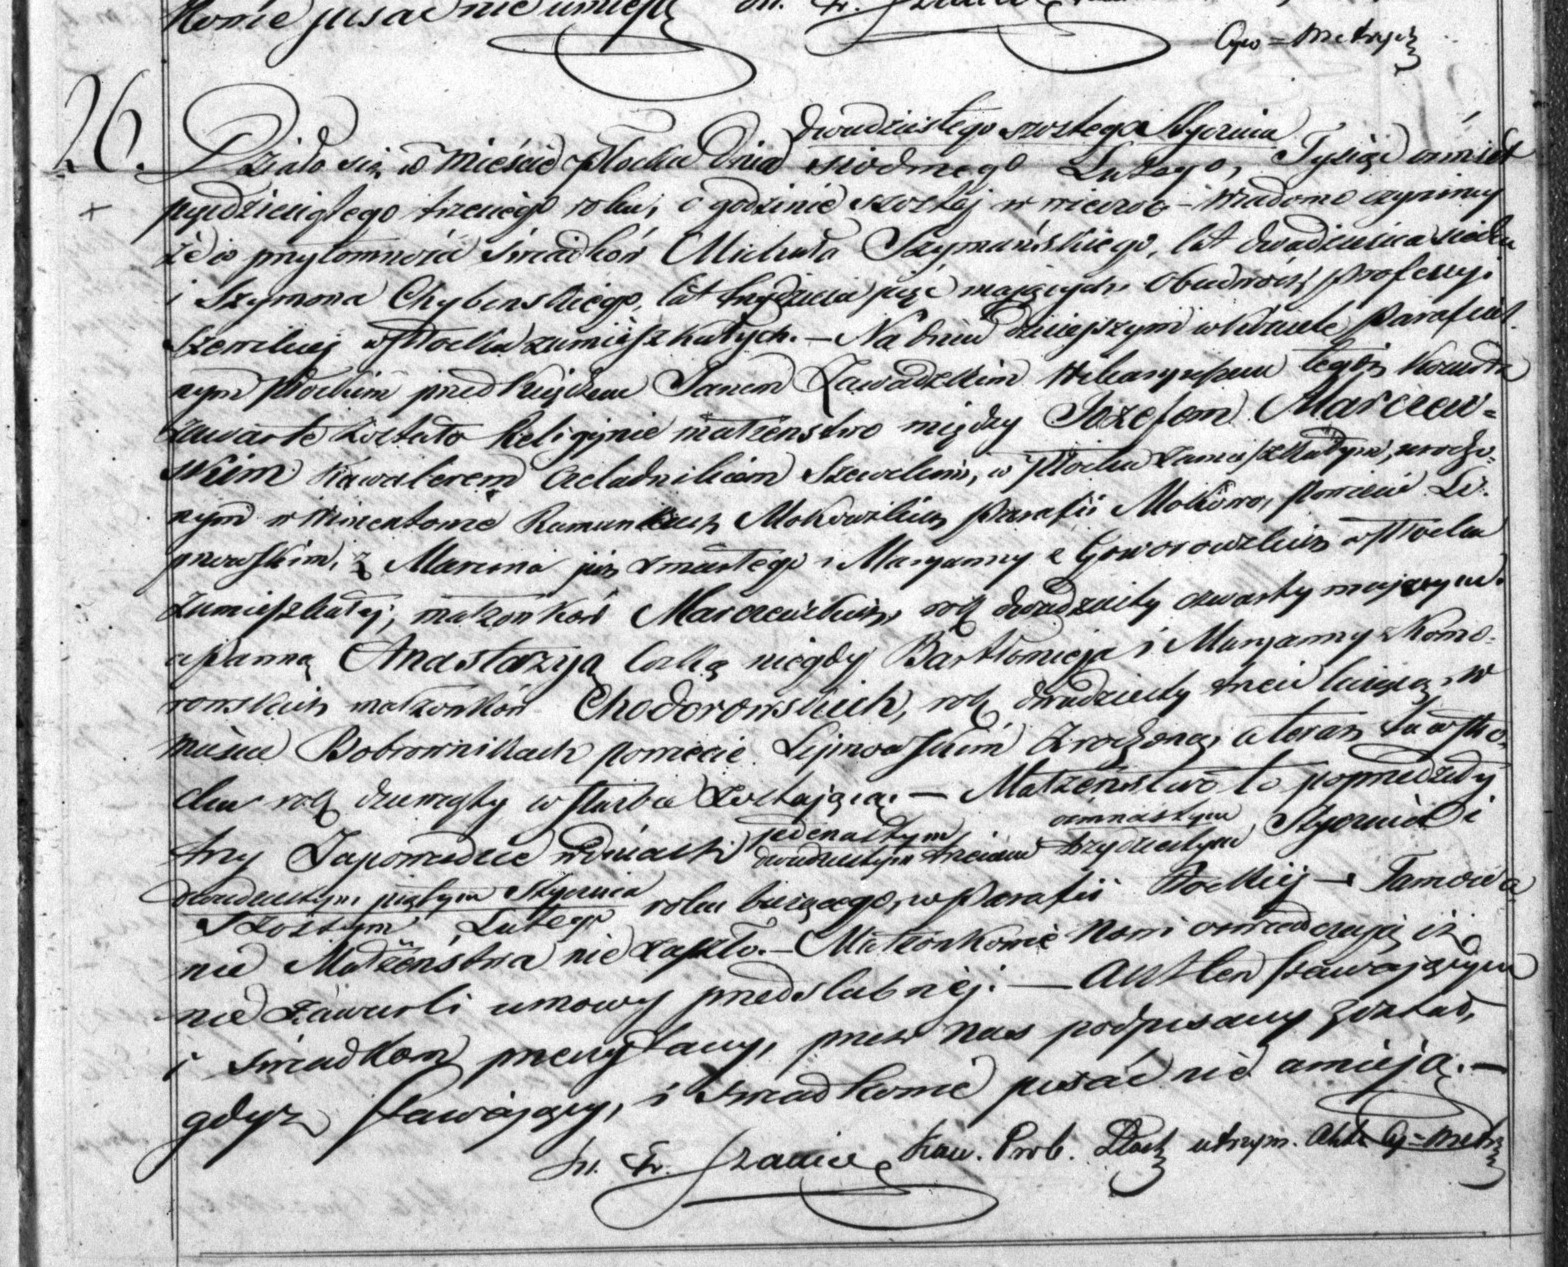 -kowie pisać nie umieją
Cyw = Metrycz
26.
dwudziestego szóstego Stycznia
Działo się w Mieście Płocku Dnia siódmego Lutego, Tysiąc ośmset
pięćdziesiątego trzeciego roku, o godzinie szóstej w wieczor – Wiadomo czynimy
że w przytomności świadków Michała Szymańskiego, lat dwadzieścia
i Szymona Chybińskiego, lat trzydzieści pięć mających, obudwóch profesyi
szewckiej w Płocku zamieszkałych. – Na dniu dzisiejszym w Kościele Parafial-
nym Płockim przed Księdzem Janem Zawadzkim Wikaryuszem tegoż Kościoła
zawarte zostało Religijnie małżeństwo między Józefem Marczew-
skim Kawalerem czeladnikiem Szewckim, w Płocku zamieszkałym, urodzo-
nym w Mokowo, powiecie Li-
pnowskim, z Marcina już zmarłego i Maryanny z Goworowskich w Płocku
zamieszkałej, małżonków Marczewskich, rok dwudziesty czwarty mającym
a Panną Anastazyą Córką niegdy Bartłomieja i Maryanny z Komo-
rowskich małżonków Chodorowskich, rok dwudziesty trzeci liczącą, w
mieście Bobrownikach powiecie Lipnowskim zrodzoną, a teraz tu w Pło-
cku rok dziewiąty w służbie zostającą. – Małżeństwo to poprzedziły
jedenastym ośmnastym
trzy Zapowiedzie w dniach dwudziestym trzecim trzydziestym Stycznia i
dwudziestym piątym Stycznia
szóstym Lutego roku bieżącego, w Parafii Płockiej – Tamowa-
nie Małżeństwa nie zaszło. – Małżonkowie Nowi oświadczają iż
nie zawarli umowy przedślubnej. – Akt ten stawającym
i świadkom przeczytany, przez nas podpisany został,
gdyż stawający, i świadkowie pisać nie umieją. –
Kan. Prob. Płock utrzym. Akta Cy = Metr